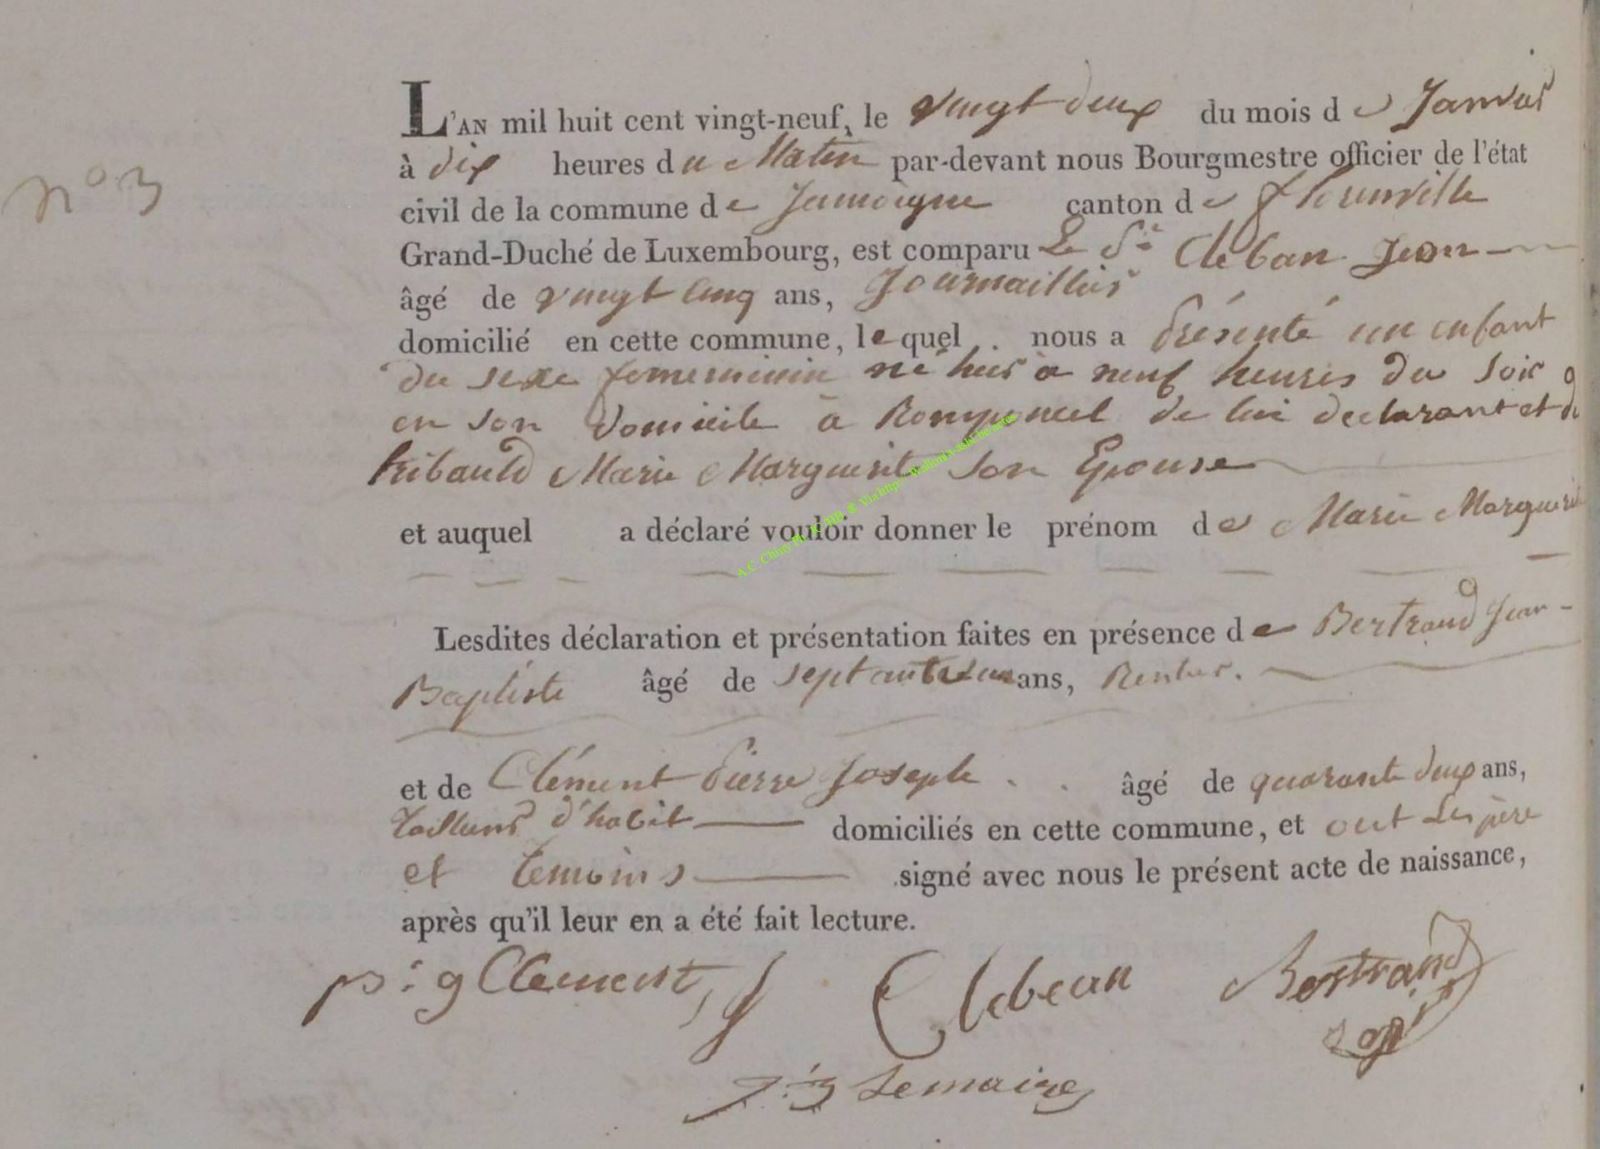 n° 3
L'AN mil huit cent vingt-neuf, le vingt deux du mois de Janvier
à dix heures du Matin par-devant nous Bourgmestre officier de l'état
civil de la commune de Jamoigne canton de florenville
Grand-Duché de Luxembourg, est comparu Le Sr Cleban Jean
âgé de vingt cinq ans, Journaillier
domicilié en cette commune, lequel nous a présenté un enfant
du sexe né hier à neuf heures du soir
en son domicile à Romponcel de lui declarant et de
Marie Marguerite son Epouse
et auquel a déclaré vouloir donner le prénom de Marie Marguerite
Lesdites déclaration et présentation faites en présence de Bertrand Jean
Baptiste âgé de ans, Rentier.
et de Clément Pierre Joseph âgé de quarante deux ans,
Tailleur d'habit domiciliés en cette commune, et ont les père
et temoins signé avec nous le présent acte de naissance,
après qu'il leur en a été fait lecture.
p: g Clement Clebean Bertrand
Lemaire